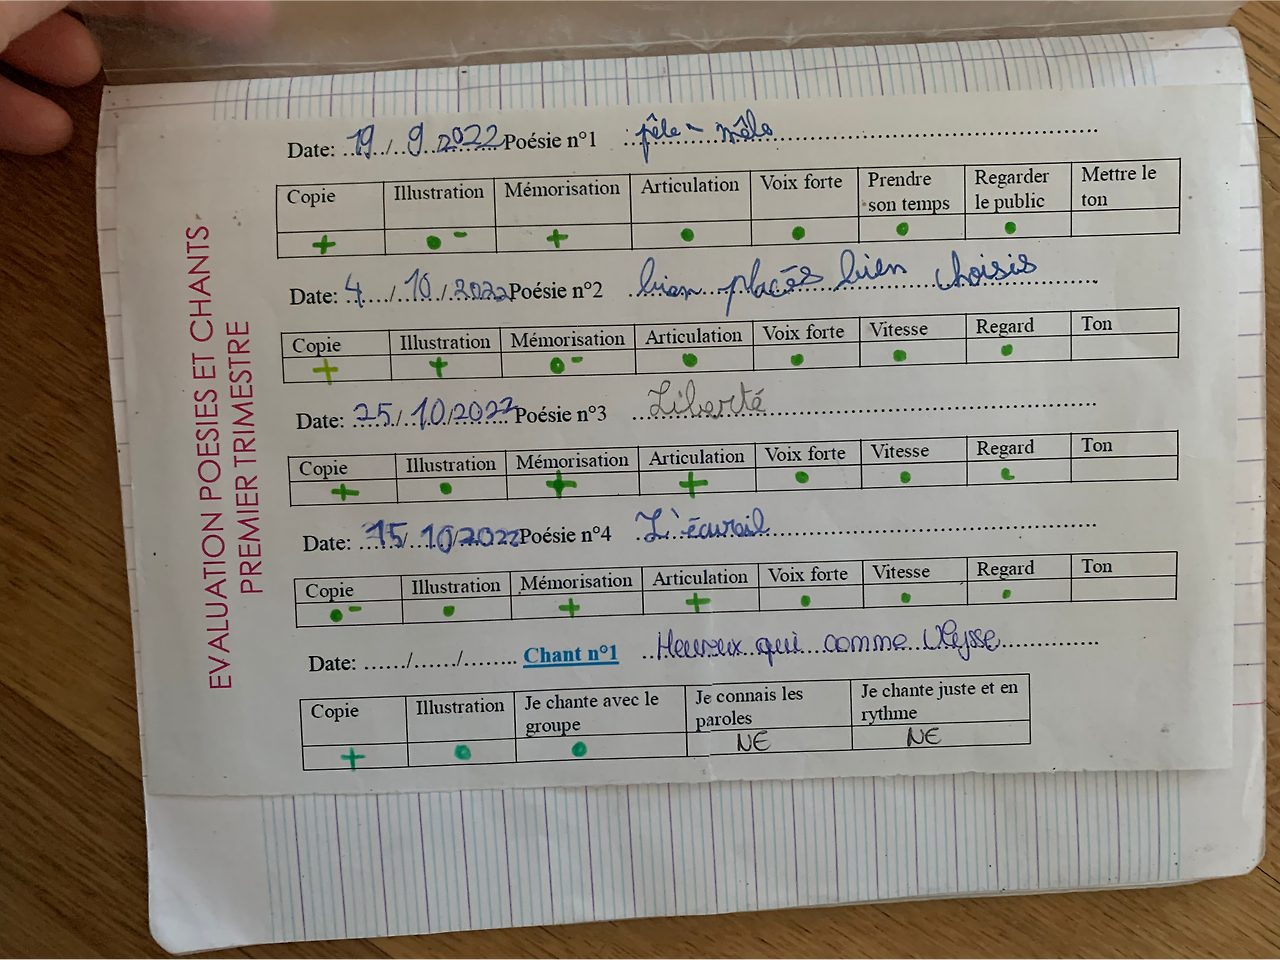 EVALUATION POESIES ET CHANTS
PREMIER TRIMESTRE
Date: 19/9/2022 Poésie n°1 pêle-mêle
Copie Illustration Mémorisation Articulation Voix forte Prendre son temps Regarder le public Mettre le ton
+ ●- + ● ● ● ●
Date: 4/10/2022 Poésie n°2 bien placés bien choisis
Copie Illustration Mémorisation Articulation Voix forte Vitesse Regard Ton
+ + ●- ● ● ● ●
Date: 25/10/2022 Poésie n°3 Liberté
Copie Illustration Mémorisation Articulation Voix forte Vitesse Regard Ton
+ ● + + ● ● ●
Date: 15/10/2022 Poésie n°4 L'écureil
Copie Illustration Mémorisation Articulation Voix forte Vitesse Regard Ton
●- ● + + ● ● ●
Date: ....../....../........ Chant n°1 Heureux qui comme Ulysse
Copie Illustration Je chante avec le groupe Je connais les paroles Je chante juste et en rythme
+ ● ● NE NE